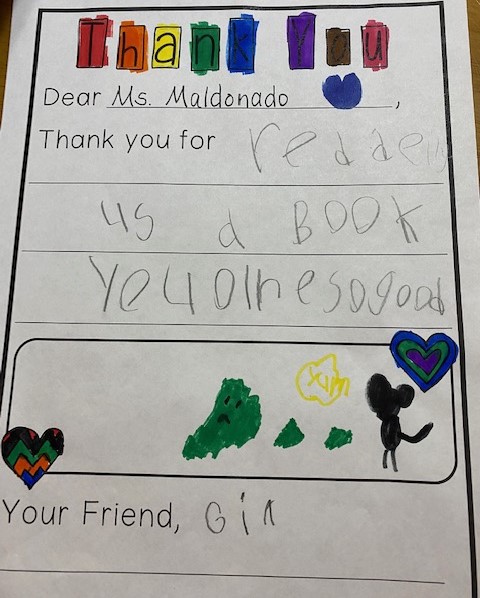 Thank You
Dear Ms. Maldonado,
Thank you for
us a BOOK
so good
Yum
Your Friend, Gia